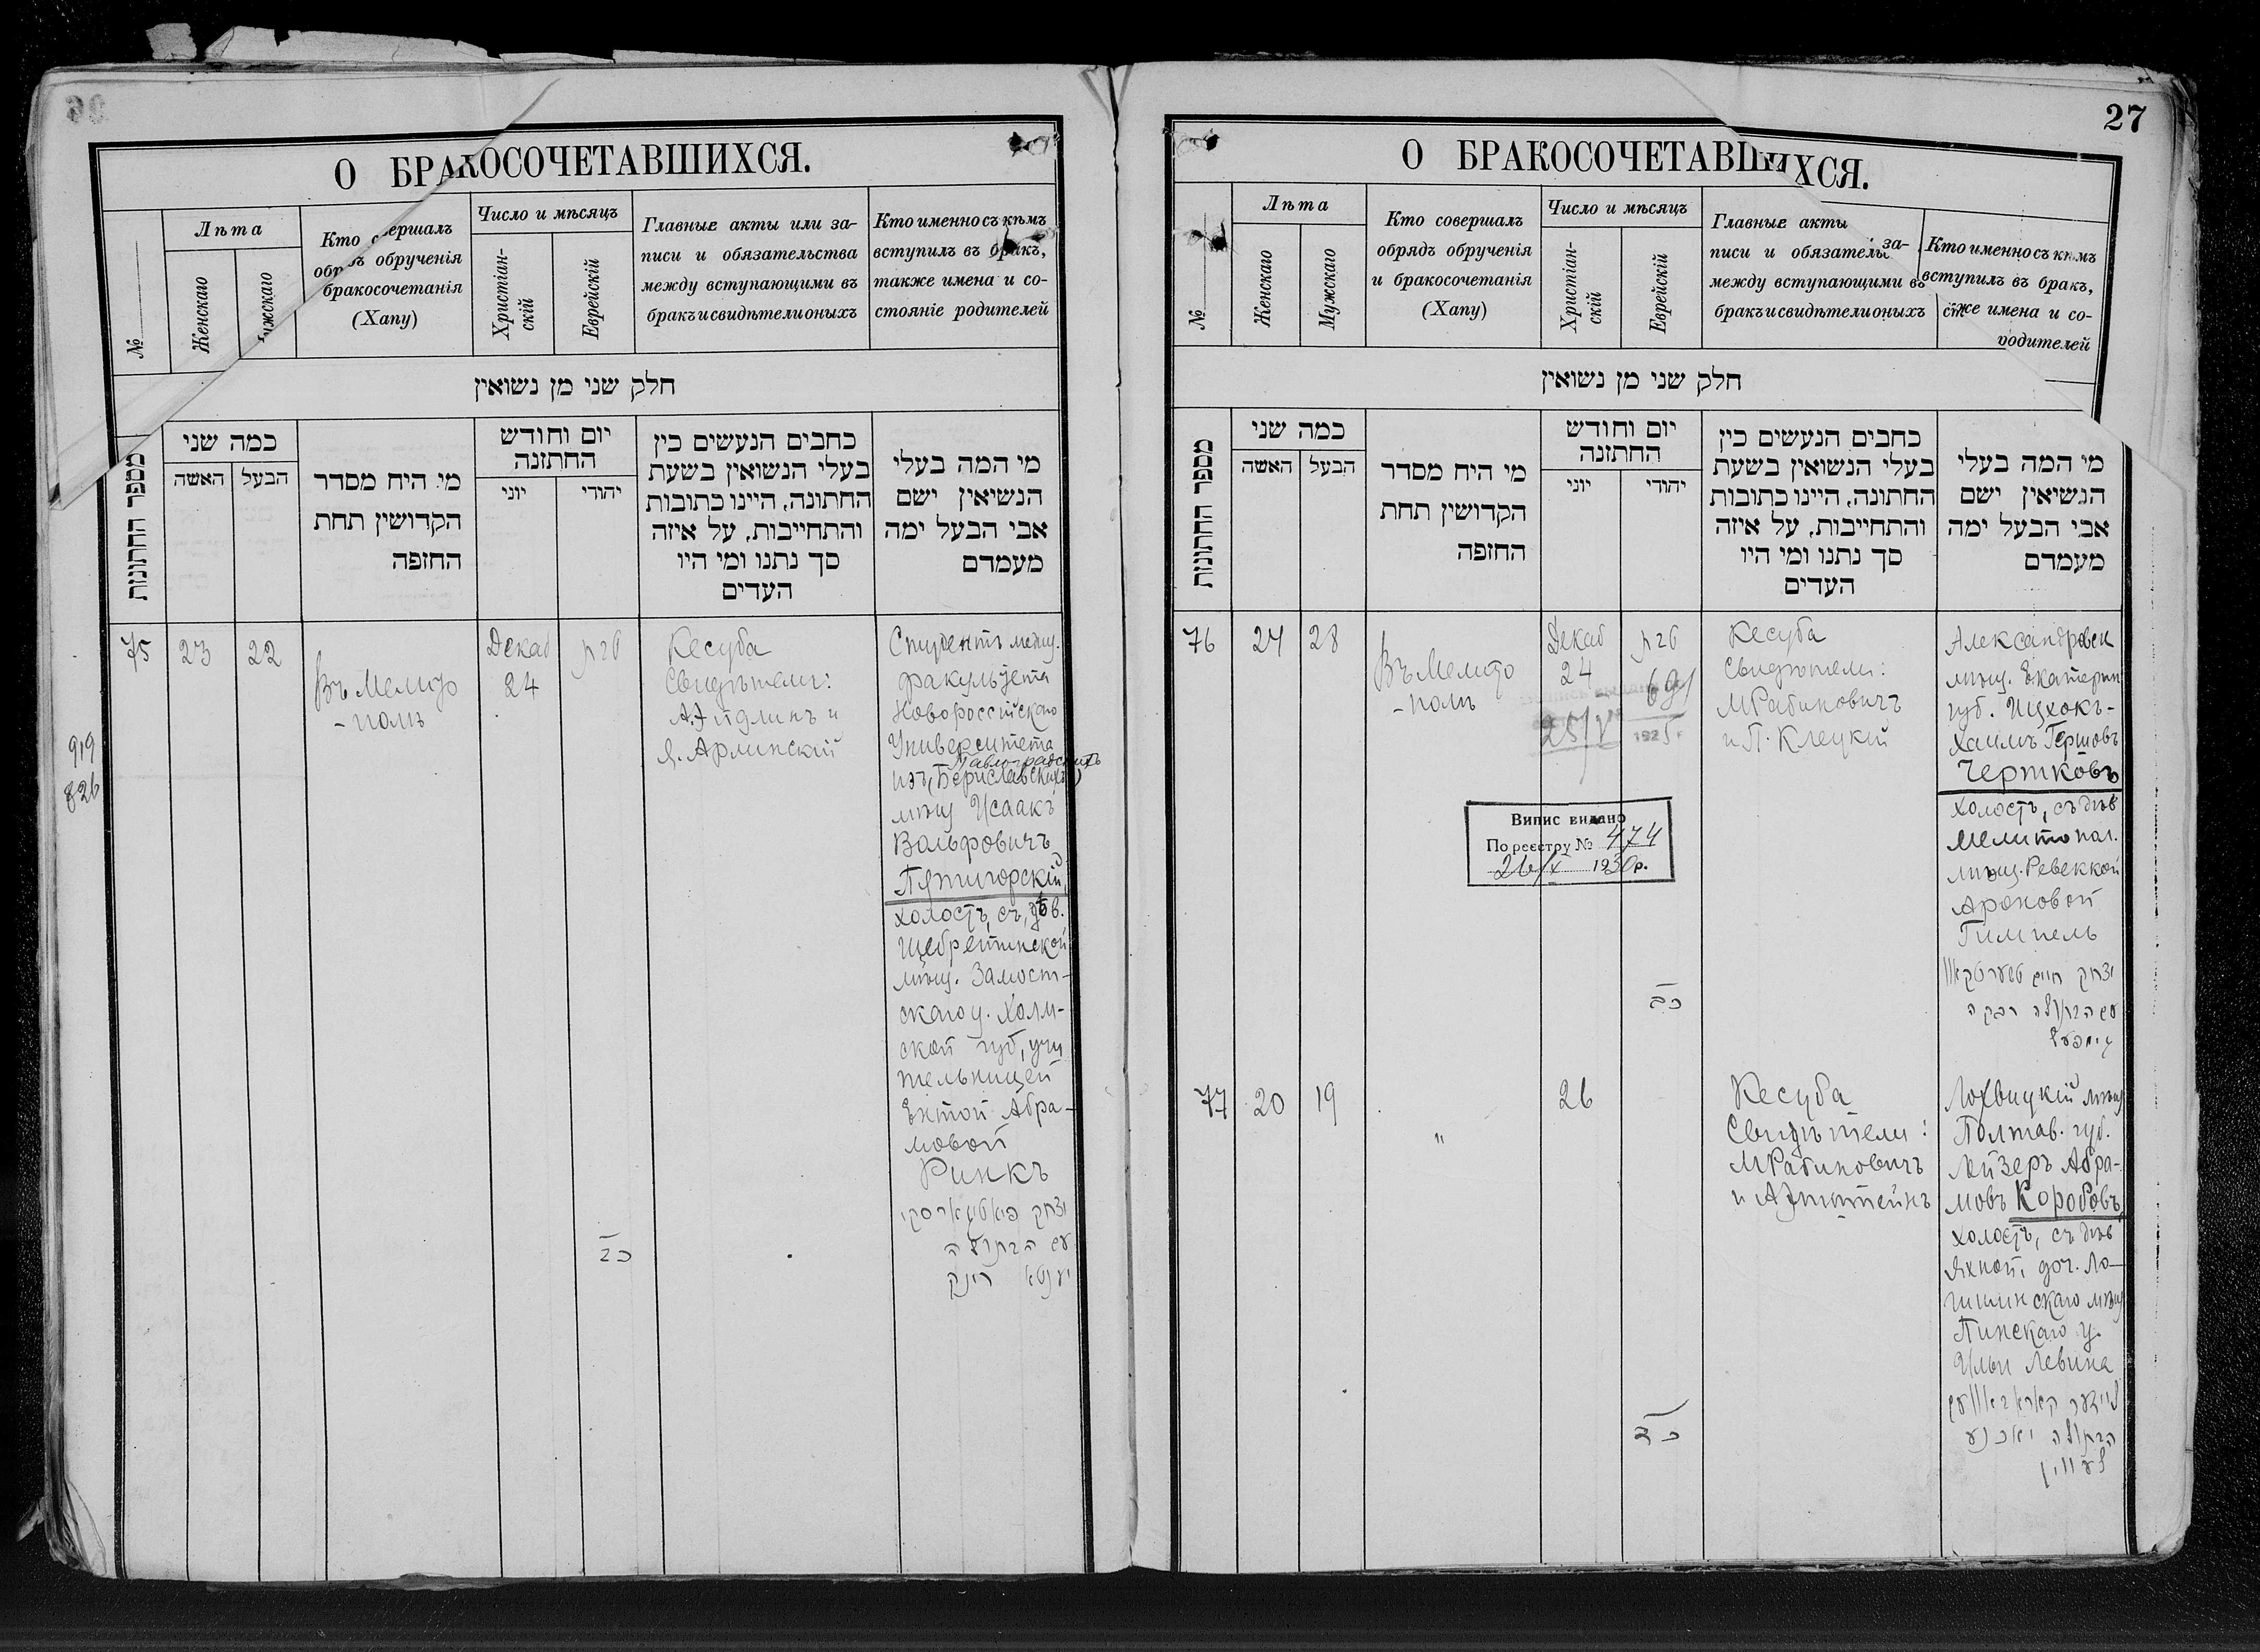 27
О БРАКОСОЧЕТАВШИХСЯ.
№
Лѣта
Женскаго
Кто
обрученія
бракосочетанія
(Хапу)
Число и мѣсяцъ
Христіан-
скій
Еврейскій
Главные акты или за-
писи и обязательства
между вступающими въ
бракъ и свидѣтели оныхъ
Кто именно съ кѣмъ
вступилъ въ бракъ,
также имена и со-
стояніе родителей
חלק שני מן נשואין
מספר החתונות
כמה שני
האשה
הבעל
מי היח מסדר
הקדושין תחת
החופה
יום וחודש
החתונה
יוני
יהודי
כתבים הנעשים בין
בעלי הנשואין בשעת
החתונה, היינו כתובות
והתחייבות, על איזה
סך נתנו ומי היו
העדים
מי המה בעלי
הנשיאין ישם
אבי הבעל ימה
מעמדם
75
23
22
Въ Мелито
-полѣ
Декаб
24
כב
Кесуба
Свидѣтели:
А. Эйдлинъ и
Я. Арлинскій
Студентъ медиц.
факультета
Новороссійскаго
Университета
Павлоградскихъ
изъ (Бериславскихъ)
мѣщ Исаакъ
Вольфовичъ
Пятигорскій,
холостъ, съ дѣв.
Щебрешинской
мѣщ. Замост-
скаго у. Холм-
ской губ, учи
тельницей
Ентой Абра-
мовой
Ринкъ
יצחק פיאטיגארסקי
עם הבתולה
יענטא רינק
919
826
О БРАКОСОЧЕТАВШИХСЯ.
№
Лѣта
Женскаго
Мужскаго
Кто совершалъ
обрядъ обрученія
и бракосочетанія
(Хапу)
Число и мѣсяцъ
Христіан-
скій
Еврейскій
Главные акты
писи и обязательс
между вступающими въ
бракъ и свидѣтели оныхъ
Кто именно съ кѣмъ
вступилъ въ бракъ,
же имена и со-
родителей
חלק שני מן נשואין
מספר החתונות
כמה שני
האשה
הבעל
מי היח מסדר
הקדושין תחת
החופה
יום וחודש
החתונה
יוני
יהודי
כתבים הנעשים בין
בעלי הנשואין בשעת
החתונה, היינו כתובות
והתחייבות, על איזה
סך נתנו ומי היו
העדים
מי המה בעלי
הנשיאין ישם
אבי הבעל ימה
מעמדם
76
24
28
Въ Мелито
-полѣ
Декаб
24
25/V
1925
Випис видано
По реєстру № 474
1930р.
כב
Кесуба
Свидѣтели:
М Рабиновичъ
и П. Клецкій
Александровск
мѣщ. Екатерин
губ. Ицхокъ-
Хаимъ Гершовъ
Чертковъ
холостъ, съ дѣв
Мелитопол.
мѣщ. Ревеккой
Ароновой
Гимпель
יצחק חיים טשערטקאוו
עם הבתולה רבקה
גימפעל
77
20
19
"
26
כד
Кесуба
Свидѣтели:
М Рабиновичъ
и А Эпштейнъ
Лохвицкій мѣщ
Полтав. губ.
Лейзеръ Абра-
мовъ Коробовъ,
холостъ, съ дѣв
Яхной, доч. Ло-
гишинскаго мѣщ
Пинскаго у.
Ильи Левина
לייזער קאראבאוו עם
הבתולה יאכנע
לעווין